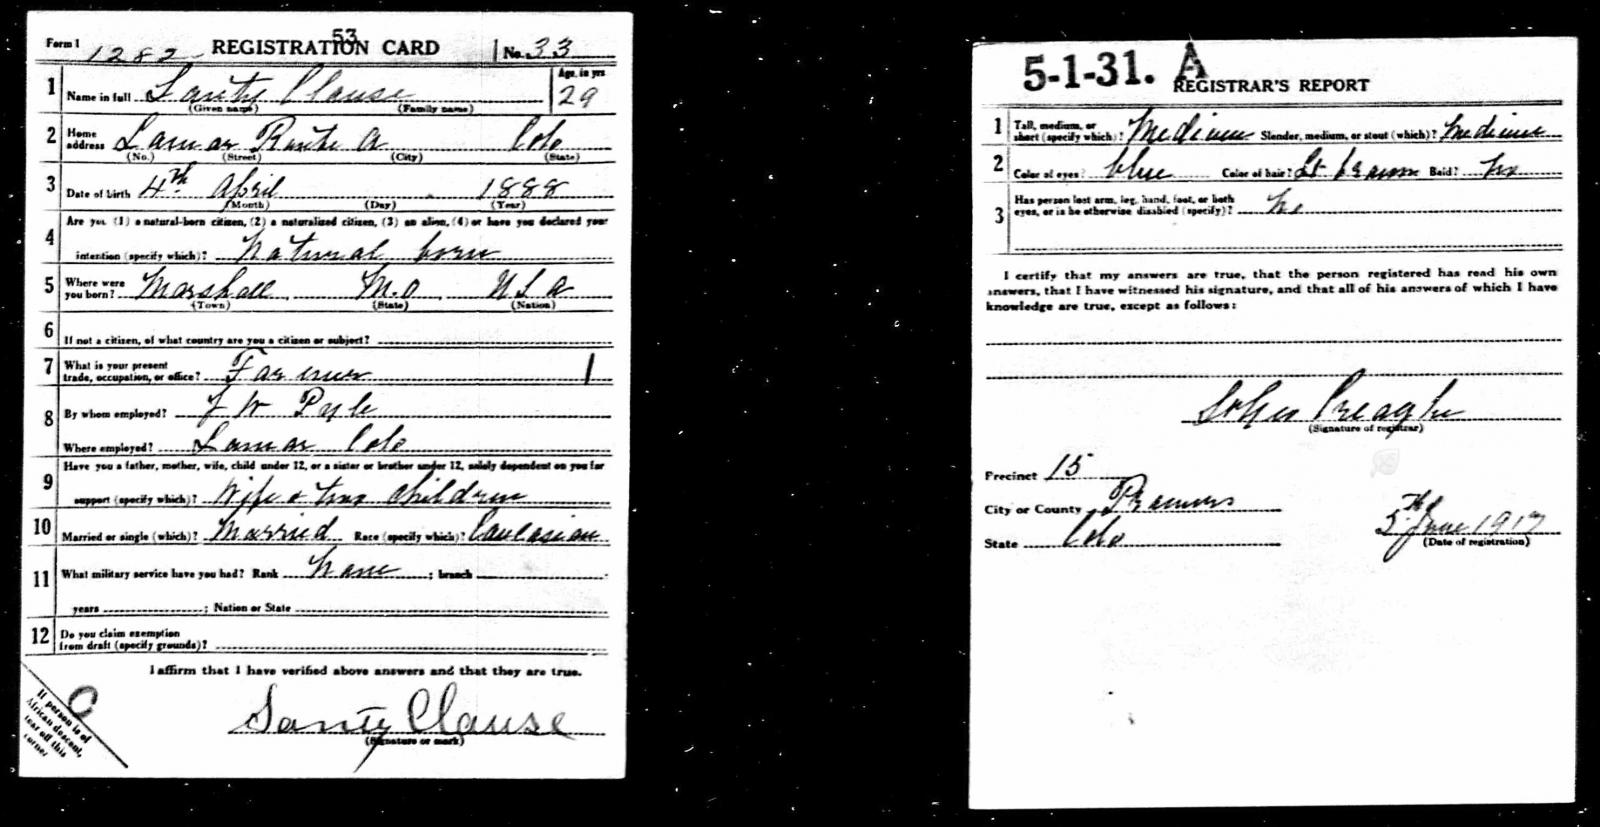 Form 1 1282 REGISTRATION CARD 53 No. 33
1 Name in full Santy Clause Age, in yrs 29
(Given name) (Family name)
2 Home address Lamar Route A Colo
(No.) (Street) (City) (State)
3 Date of birth 4th April 1888
(Month) (Day) (Year)
4 Are you (1) a natural-born citizen, (2) a naturalized citizen, (3) an alien, (4) or have you declared your
intention (specify which)? Natural born
5 Where were you born? Marshall M.o U S a
(Town) (State) (Nation)
6 If not a citizen, of what country are you a citizen or subject?
7 What is your present trade, occupation, or office? Farmer 1
8 By whom employed? J W Pyle
Where employed? Lamar Colo
9 Have you a father, mother, wife, child under 12, or a sister or brother under 12, solely dependent on you for
support (specify which)? Wife & two children
10 Married or single (which)? Married Race (specify which)? Caucasian
11 What military service have you had? Rank None ; branch
years ; Nation or State
12 Do you claim exemption from draft (specify grounds)?
I affirm that I have verified above answers and that they are true.
Santy Clause
(Signature or mark)
If person is of
African descent,
tear off this
corner
5-1-31. A
REGISTRAR'S REPORT
1 Tall, medium, or short (specify which)? Medium Slender, medium, or stout (which)? Medium
2 Color of eyes? blue Color of hair? Lt brown Bald? No
3 Has person lost arm, leg, hand, foot, or both eyes, or is he otherwise disabled (specify)? No
I certify that my answers are true, that the person registered has read his own
answers, that I have witnessed his signature, and that all of his answers of which I have
knowledge are true, except as follows:
(Signature of registrar)
Precinct 15
City or County Prowers
State Colo
5th June 1917
(Date of registration)